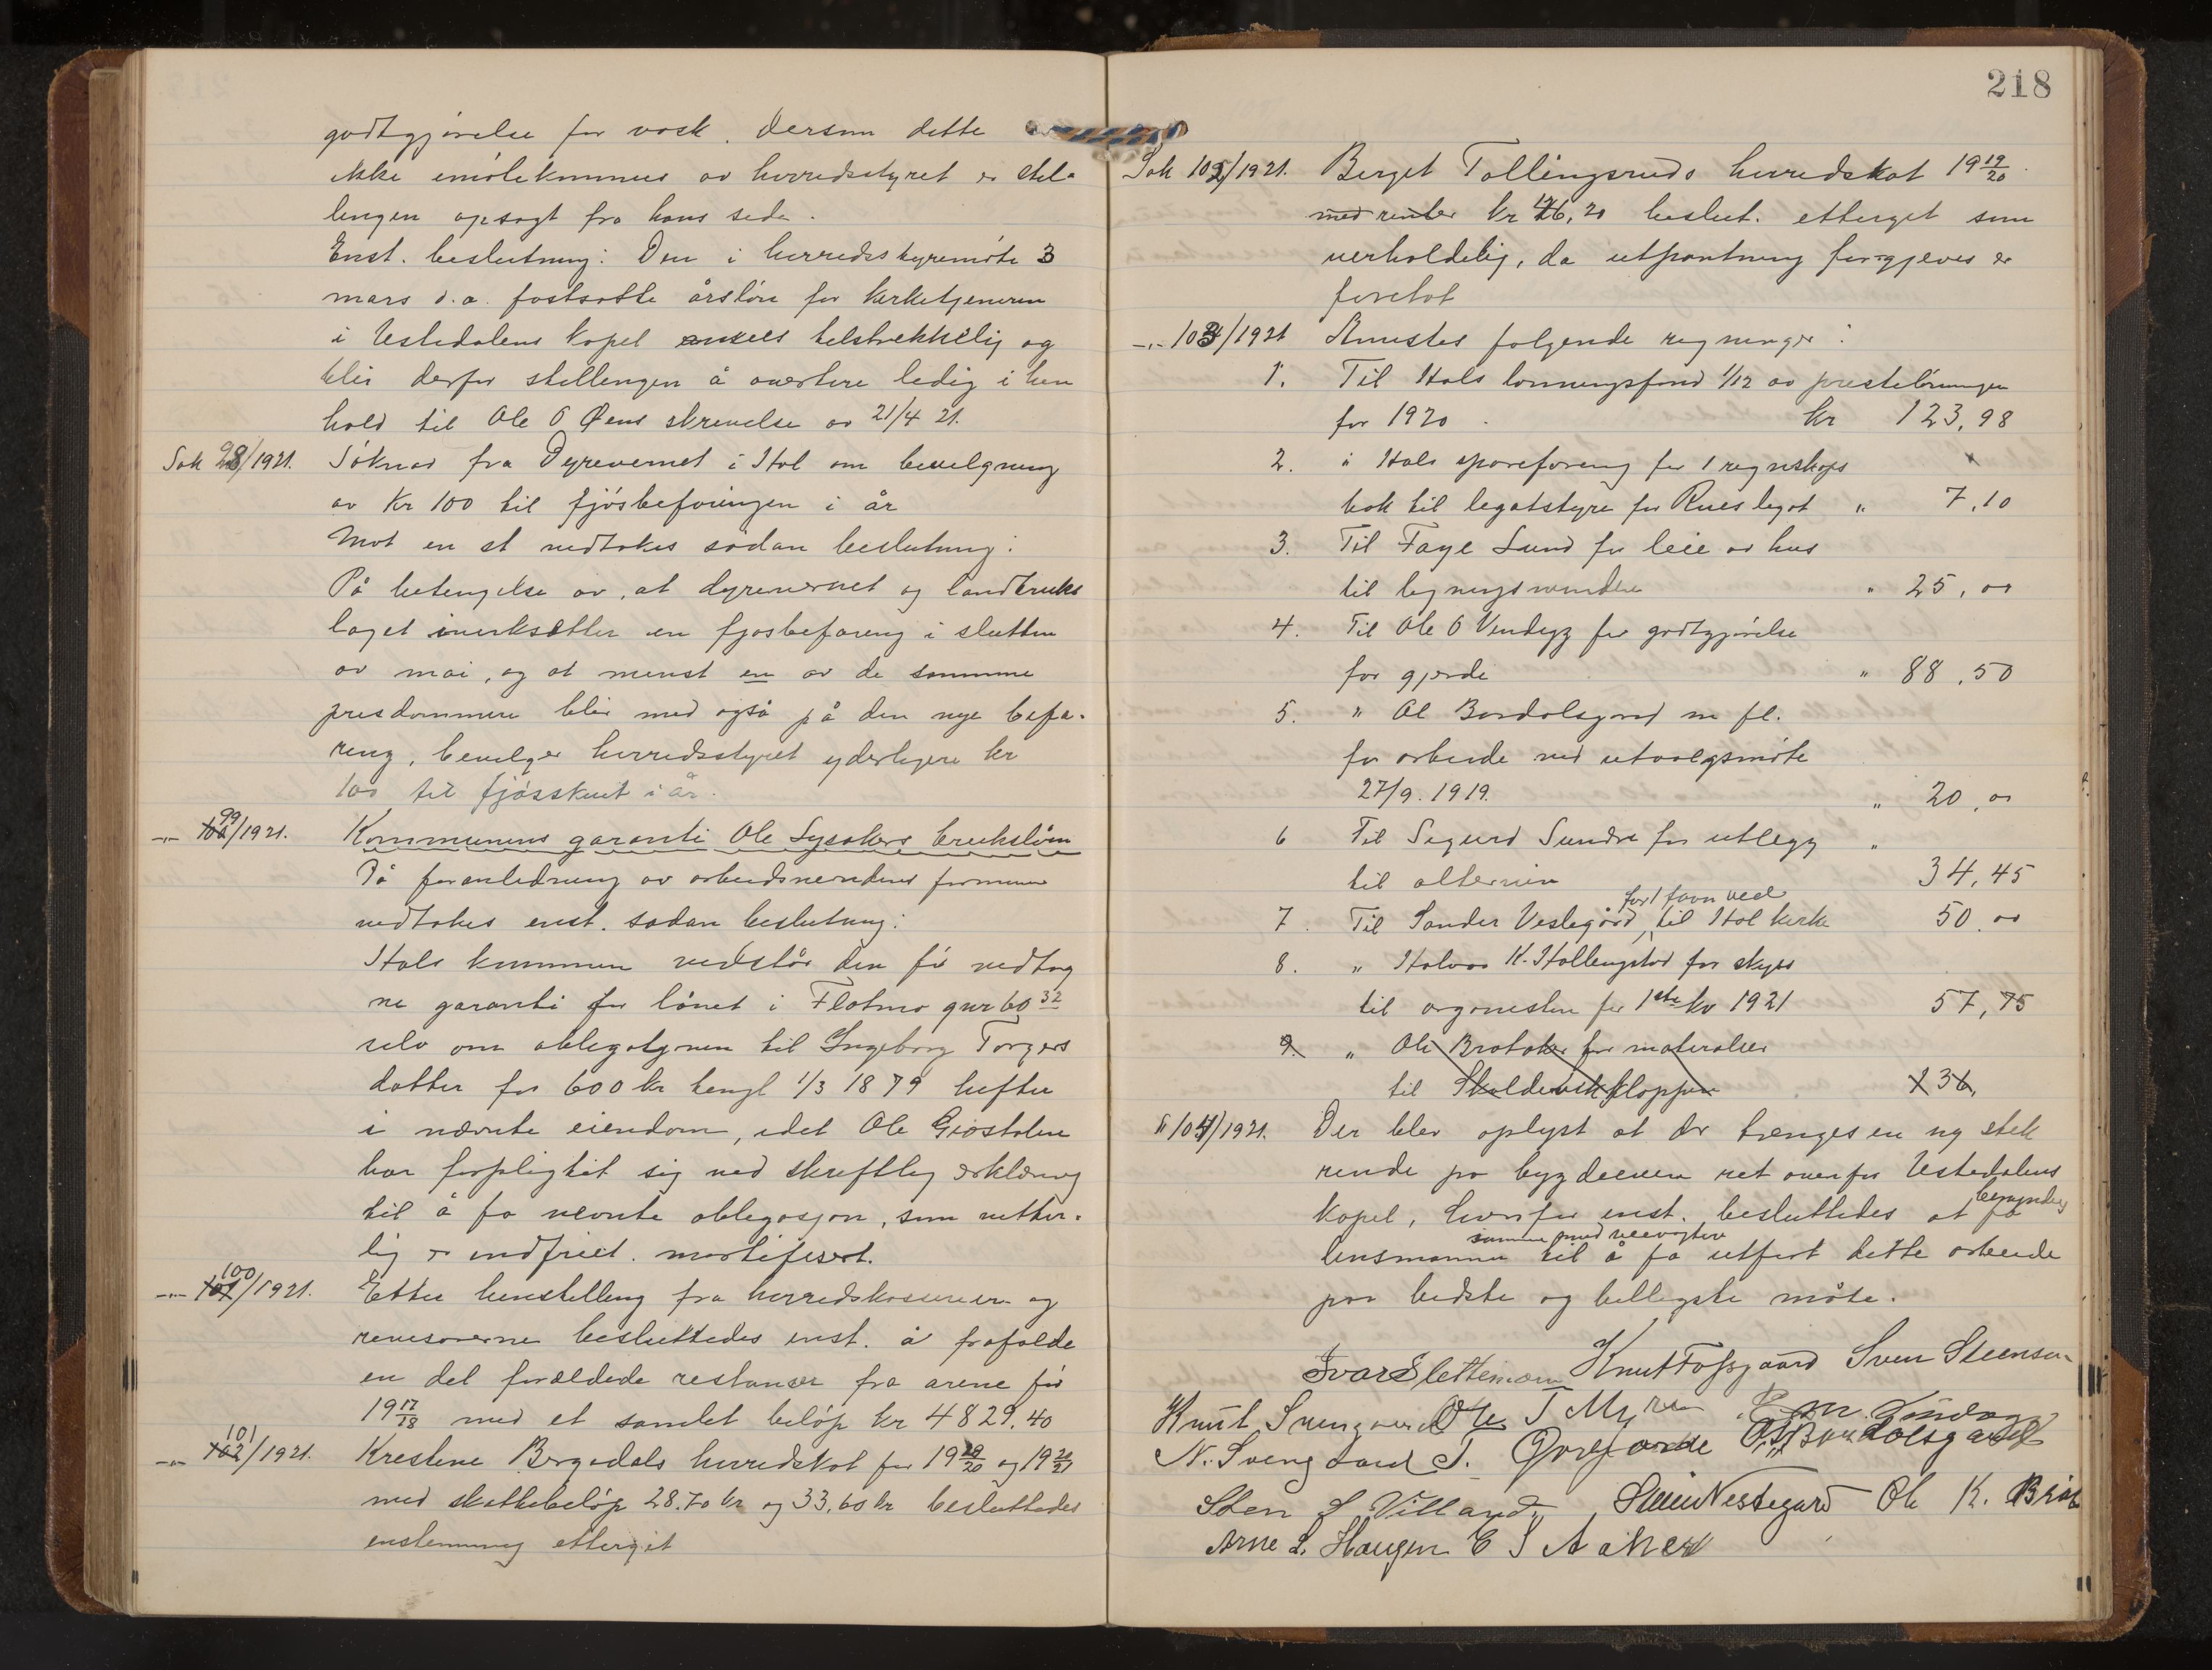 godtgjørelse for vask. Dersom dette
ikke imøtekommes av herredsstyret er stil-
lingen opsagt fra hans side.
Enst. beslutning: Den i herredsstyremøte 3
mars d.a. fastsatte årsløn for kirketjeneren
i Ustedalens kapel ansees tilstrekkelig og
blir derfor stillingen å avertere ledig i hen
hold til Ole O Øens skrivelse av 21/4 21.
Sak 98/1921. Søknad fra Dyrevernet i Hol om bevilgning
av Kr 100 til fjøsbefaringen i år
Mot en st vedtokes sådan beslutning:
På betingelse av, at dyrevernet og landbruks
laget iverksetter en fjøsbefaring i slutten
av mai, og at minst en av de samme
prisdommere blir med også på den nye befa-
ring, bevilger herredsstyret yderligere kr
100 til fjøsskuet i år.
-"- 99/1921. Kommunens garanti Ole Sysakers bruksløn
På foranledning av arbeidsnemdens formann
vedtokes enst. sådan beslutning:
Hols kommune vedstår den før vedtag
ne garanti for lånet i Flatmo gnr 60 32
selv om obligasjonen til Ingeborg Torgers
datter for 600 kr tengl 1/3 1879 hefter
i nævnte eiendom, idet Ole Geostølen
har forpligtet sig ved skriftlig erklæring
til å få nevnte obligasjon, som retter-
lig er indfriet. mortifisert.
-"- 100/1921. Etter henstilling fra herredskassereren og
revisorerne besluttedes enst. å frafalde
en del foreldede restanser fra årene før
19 17/18 med et samlet beløp kr 4829.40
-"- 101/1921. Kristine Bergedals herredskat for 19 19/20 og 19 20/21
med skattebeløp 28.70 kr og 33,60 kr besluttedes
enstemmig etterg it
218
Sak 102/1921. Birgit Tollingsruds herredskat 19 19/20
med renter kr 16,20 beslut. ettergit som
uerholdelig, da utpantning forgjeves er
foretat
-"- 103/1921 Anvistes følgende regninger:
1. Til Hols lønningsfond 1/12 av presteløningen
for 1920 kr 123,98
2. " Hols spareforening for 1 regnskaps
bok til legatstyre for Rues legat " 7,10
3. Til Faye Lund for leie av hus
til ligningsvæsenet " 25,00
4. Til Ole O Vindegg for godtgjørelse
for gjerde " 88,50
5. " Ol Bardolsgard m fl.
for arbeide ved utvalgsmøte
27/9. 1919. " 20,00
6 Til Sigurd Sundre for utlegg "
til altervin 34,45
7. Til Sander Veslegård, for 1 favn ved til Hol kirke 50,00
8. " Halvor K. Hallingstad for skyss
til organisten for 1ste kv 1921 57,75
9. " Ole Brataker for materialer
til Skuldeviskkloppen 136,
" 104/1921. Der blev oplyst at der trænges en ny stek
rende på bygdeveien ret overfor Ustedalens
kapel, hvorfor enst. besluttedes at få bemyndig
lensmannen sammen med veivogteren til å få utført dette arbeide
paa bedste og billigste måte.
Ivar Slettemoen Knut Fossgaard Sven Steensen
Knut Svengaard Ole T Myren
N. Svengaard T.
Sten S Villand. Svein Nestegard Ole K. Bråt
Arne L. Haugen E S Aaker